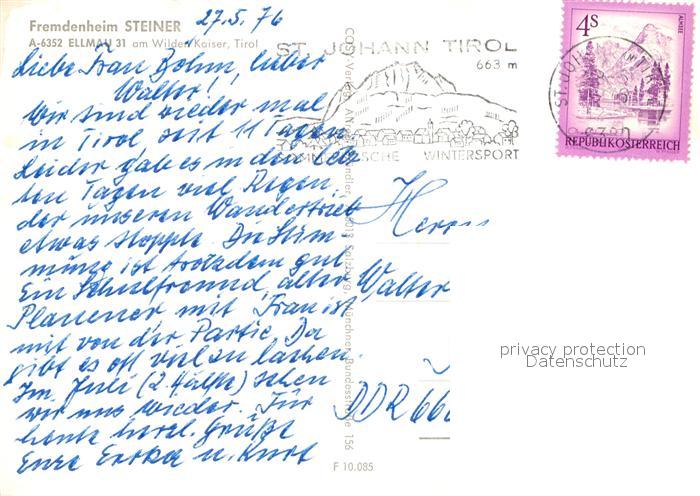 Fremdenheim STEINER
A-6352 ELLMAU 31 am Wilden Kaiser, Tirol
27.5.76
Liebe Frau Böhm, lieber
Walter!
Wir sind wieder mal
in Tirol seit 11 Tagen
Leider gab es in den letz
ten Tagen viel Regen,
der unseren Wandertrieb
etwas stoppte. Die Stim
mung ist trotzdem gut
Ein Schulfreund, alter
Plauener mit Frau ist
mit von der Partie. Da
gibt es oft viel zu lachen.
Im Juli (2. Hälfte) sehen
wir uns wieder. Für
heute herzl. Grüße
Eure Erika u. Kurt
ST. JOHANN TIROL
663 m
WINTERSPORT
4S
ALMSEE
REPUBLIK ÖSTERREICH
Salzburg, Münchner Bundesstraße 156
Herrn
Walter
DDR 66
privacy protection
Datenschutz
F 10.085